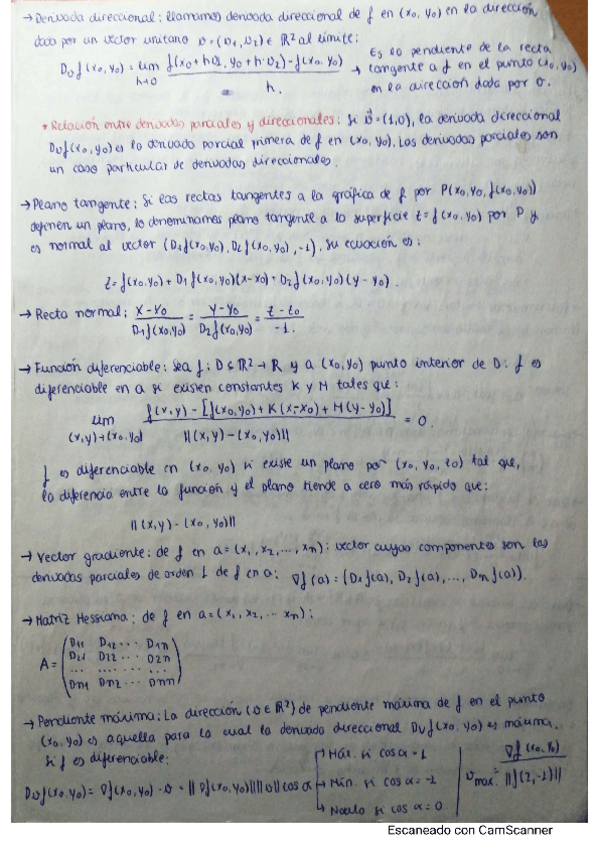 → Derivada direccional: llamamos derivada direccional de f en (x₀, y₀) en la dirección
dada por un vector unitario υ = (υ₁, υ₂) ∈ ℝ² al límite:
Dυf(x₀, y₀) = lim h→0 (f(x₀ + hυ₁, y₀ + h·υ₂) - f(x₀, y₀)) / h. → Es la pendiente de la recta
tangente a f en el punto (x₀, y₀)
en la dirección dada por υ.
* Relación entre derivadas parciales y direccionales: si υ⃗ = (1,0), la derivada direccional
Dυf(x₀, y₀) es la derivada parcial primera de f en (x₀, y₀). Las derivadas parciales son
un caso particular de derivadas direccionales.
→ Plano tangente: Si las rectas tangentes a la gráfica de f por P(x₀, y₀, f(x₀, y₀))
definen un plano, lo denominamos plano tangente a la superficie z = f(x₀, y₀) por P y
es normal al vector (D₁f(x₀, y₀), D₂f(x₀, y₀), -1). Su ecuación es:
z = f(x₀, y₀) + D₁f(x₀, y₀)(x - x₀) + D₂f(x₀, y₀)(y - y₀).
→ Recta normal: (x - x₀) / D₁f(x₀, y₀) = (y - y₀) / D₂f(x₀, y₀) = (z - z₀) / -1.
→ Función diferenciable: Sea f: D ⊆ ℝ² → ℝ y a (x₀, y₀) punto interior de D: f es
diferenciable en a si existen constantes K y M tales que:
lim (x,y)→(x₀, y₀) (f(x,y) - [f(x₀, y₀) + K(x - x₀) + M(y - y₀)]) / ||(x,y) - (x₀, y₀)|| = 0.
f es diferenciable en (x₀, y₀) si existe un plano por (x₀, y₀, z₀) tal que,
la diferencia entre la función y el plano tiende a cero más rápido que:
||(x,y) - (x₀, y₀)||
→ Vector gradiente: de f en a = (x₁, x₂, ..., xn): vector cuyas componentes son las
derivadas parciales de orden 1 de f en a: ∇f(a) = (D₁f(a), D₂f(a), ..., Dnf(a)).
→ Matriz Hessiana: de f en a = (x₁, x₂, ... xn):
D₁₁ D₁₂ ... D₁n
A = D₂₁ D₂₂ ... D₂n
... ... ... ...
Dn₁ Dn₂ ... Dnn
→ Pendiente máxima: La dirección (υ ∈ ℝ²) de pendiente máxima de f en el punto
(x₀, y₀) es aquella para la cual la derivada direccional Dυf(x₀, y₀) es máxima.
Si f es diferenciable:
Dυf(x₀, y₀) = ∇f(x₀, y₀) · υ = ||∇f(x₀, y₀)|| ||υ|| cos α
→ Máx. si cos α = 1
→ Mín. si cos α = -1
→ Nulo si cos α = 0
υmax. = ∇f(x₀, y₀) / ||f(2,-1)||
Escaneado con CamScanner